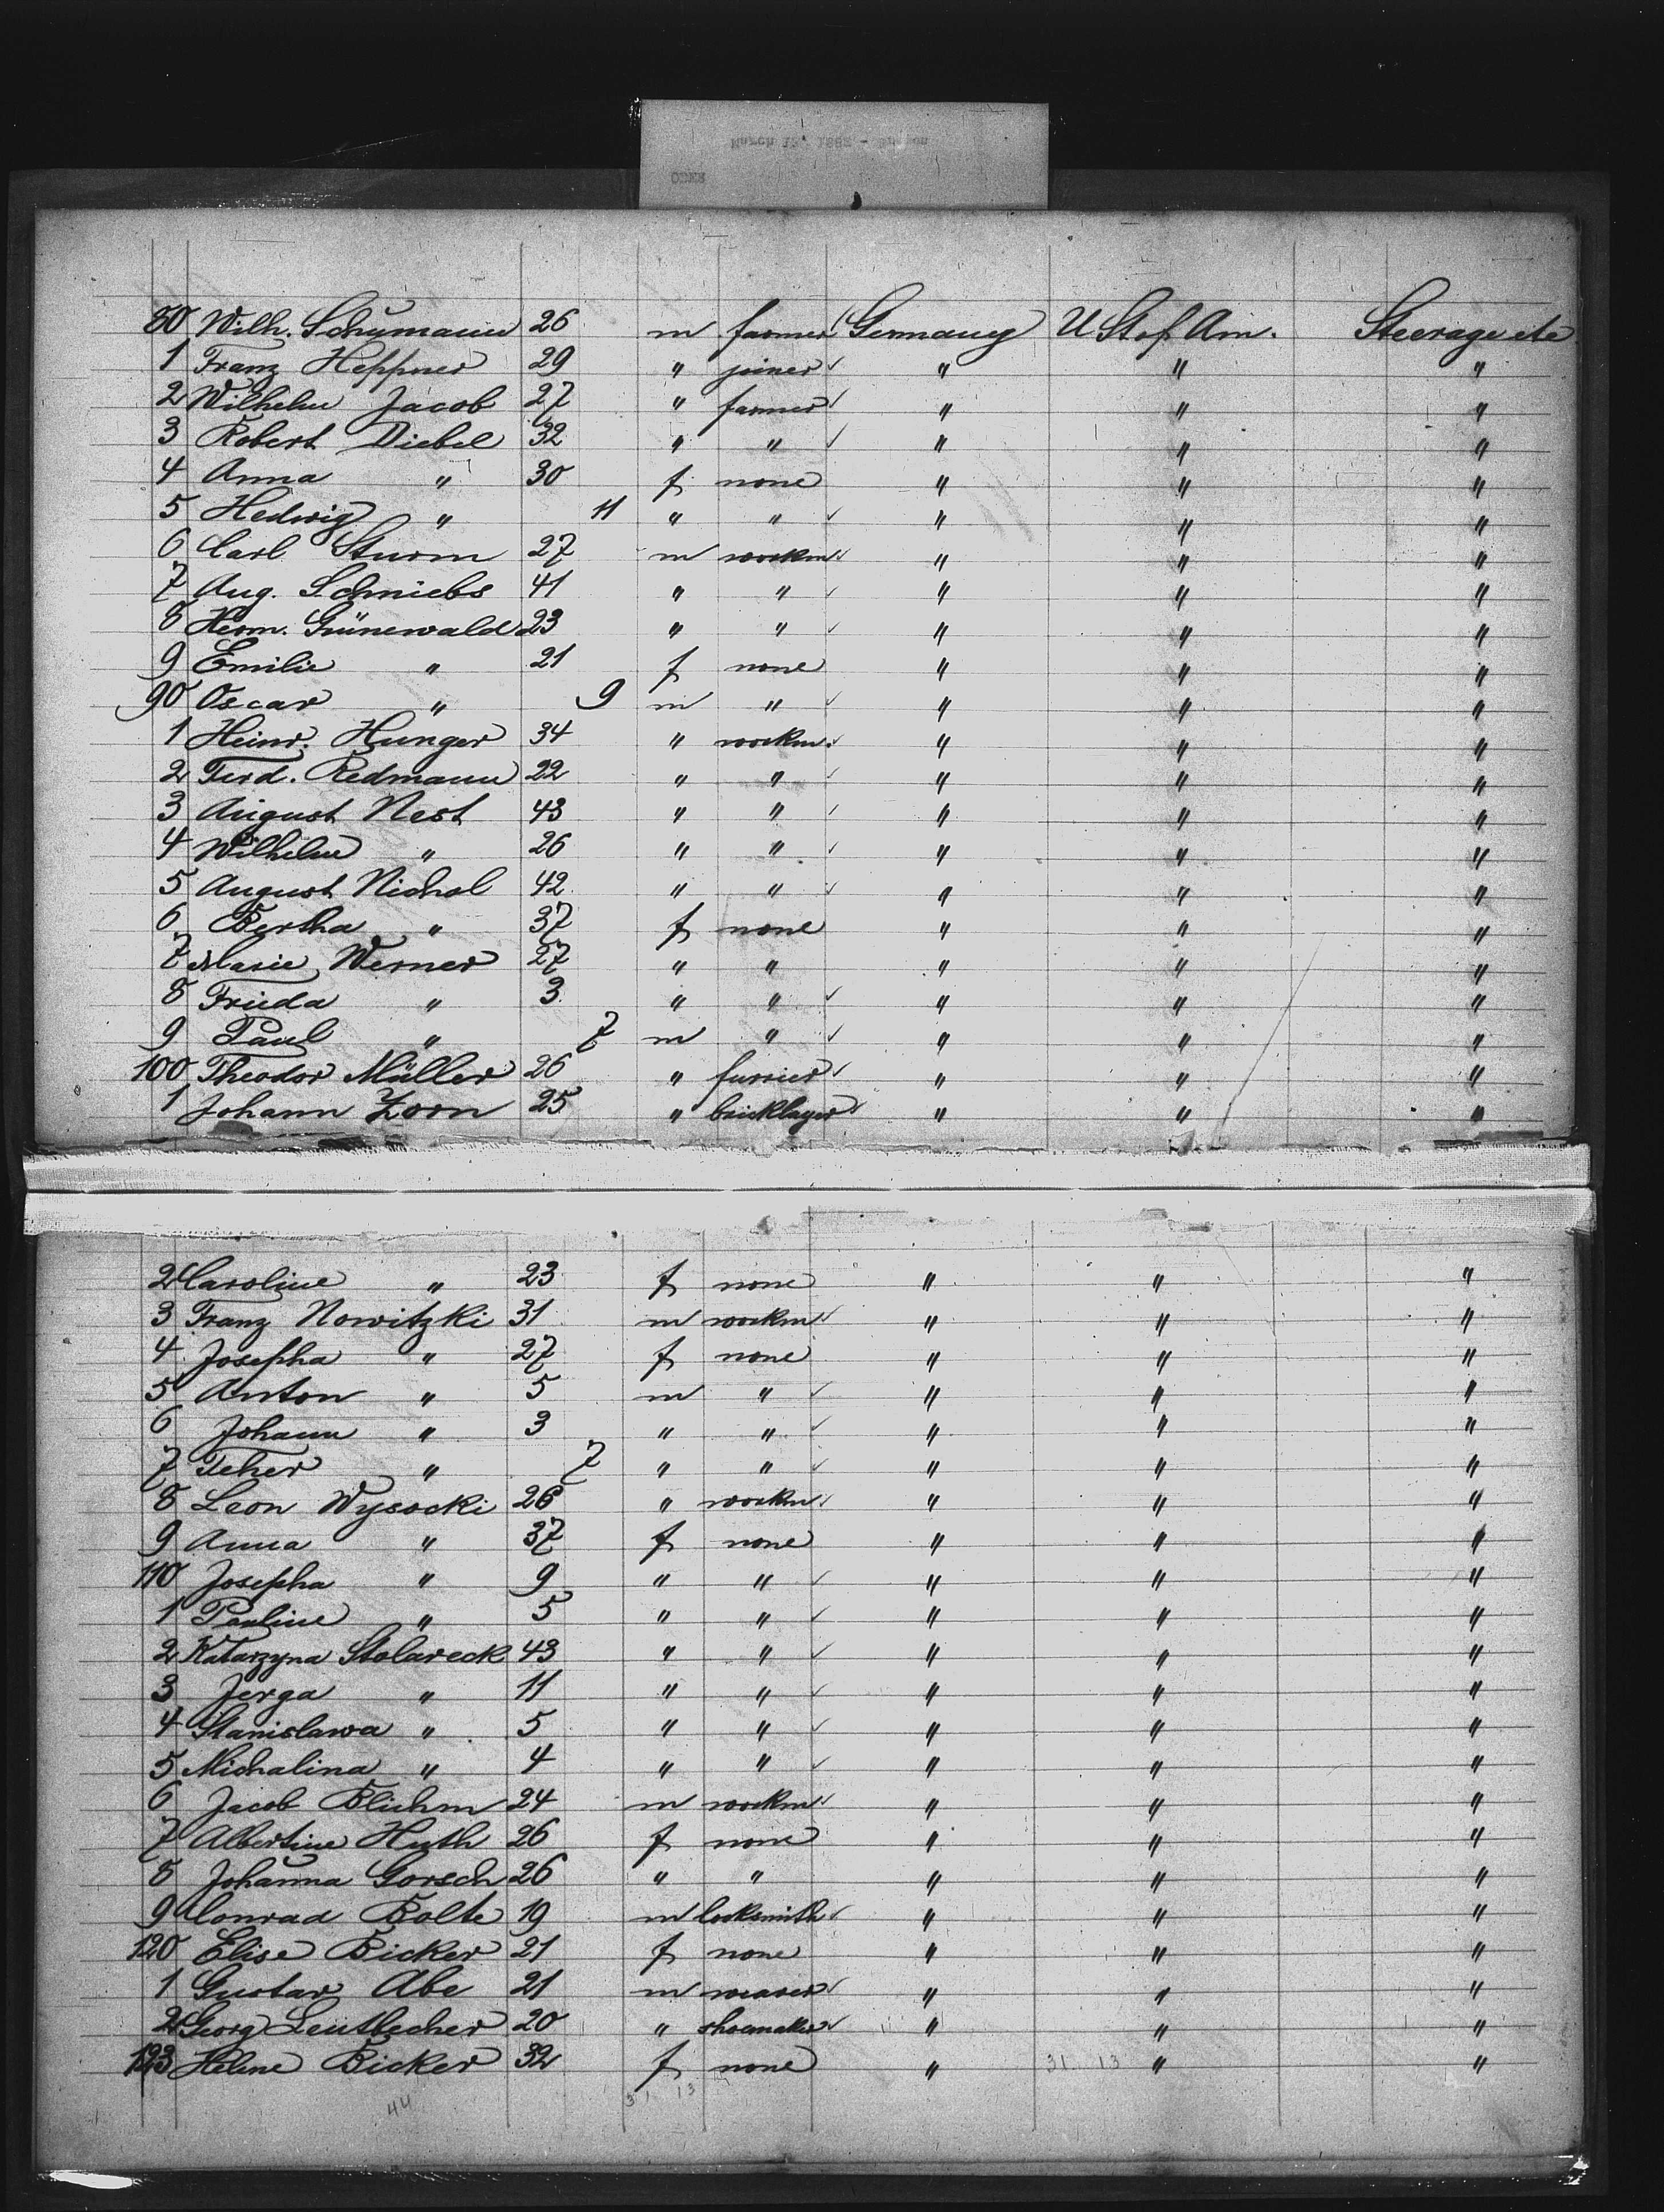 80 Wilh. Schumann 26 m farmer Germany U St of Am. Steerage etc
1 Franz Heppner 29 " joiner " " "
2 Wilhelm Jacob 27 " farmer " " "
3 Robert Diebel 32 " " " " "
4 Anna " 30 f none " " "
5 Hedwig " 11 " " " " "
6 Carl Sturm 27 m workm " " "
7 Aug. Schniebs 41 " " " " "
8 Herm. Grünewald 23 " " " " "
9 Emilie " 21 f none " " "
90 Oscar " 9 m " " " "
1 Heinr. Hunger 34 " workm. " " "
2 Ferd. Redmann 22 " " " " "
3 August Nest 43 " " " " "
4 Wilhelm " 26 " " " " "
5 August Nichol 42 " " " " "
6 Bertha " 37 f none " " "
7 Marie Werner 27 " " " " "
8 Frieda " 3 " " " " "
9 Paul " 7 m " " " "
100 Theodor Müller 26 " furrier " " "
1 Johann Zorn 25 " bricklayer " " "
2 Caroline " 23 f none " " "
3 Franz Nowitzki 31 m workm " " "
4 Josepha " 27 f none " " "
5 Anton " 5 m " " " "
6 Johann " 3 " " " " "
7 " 7 " " " " "
8 Leon Wysocki 26 " workm " " "
9 Anna " 37 f none " " "
110 Josepha " 9 " " " " "
1 Pauline " 5 " " " " "
2 Katarzyna Stolareck 43 " " " " "
3 Jerga " 11 " " " " "
4 Stanislawa " 5 " " " " "
5 Michalina " 4 " " " " "
6 Jacob Bluhm 24 m workm " " "
7 Albertine Huth 26 f none " " "
8 Johanna Gorsch 26 " " " " "
9 Conrad Bolte 19 m locksmith " " "
120 Elise Bicker 21 f none " " "
1 Gustav Abe 21 m weaver " " "
2 Georg Leutbecher 20 " shoemaker " " "
123 Helene Bicker 32 f none " 31 13 " "
44 31 13